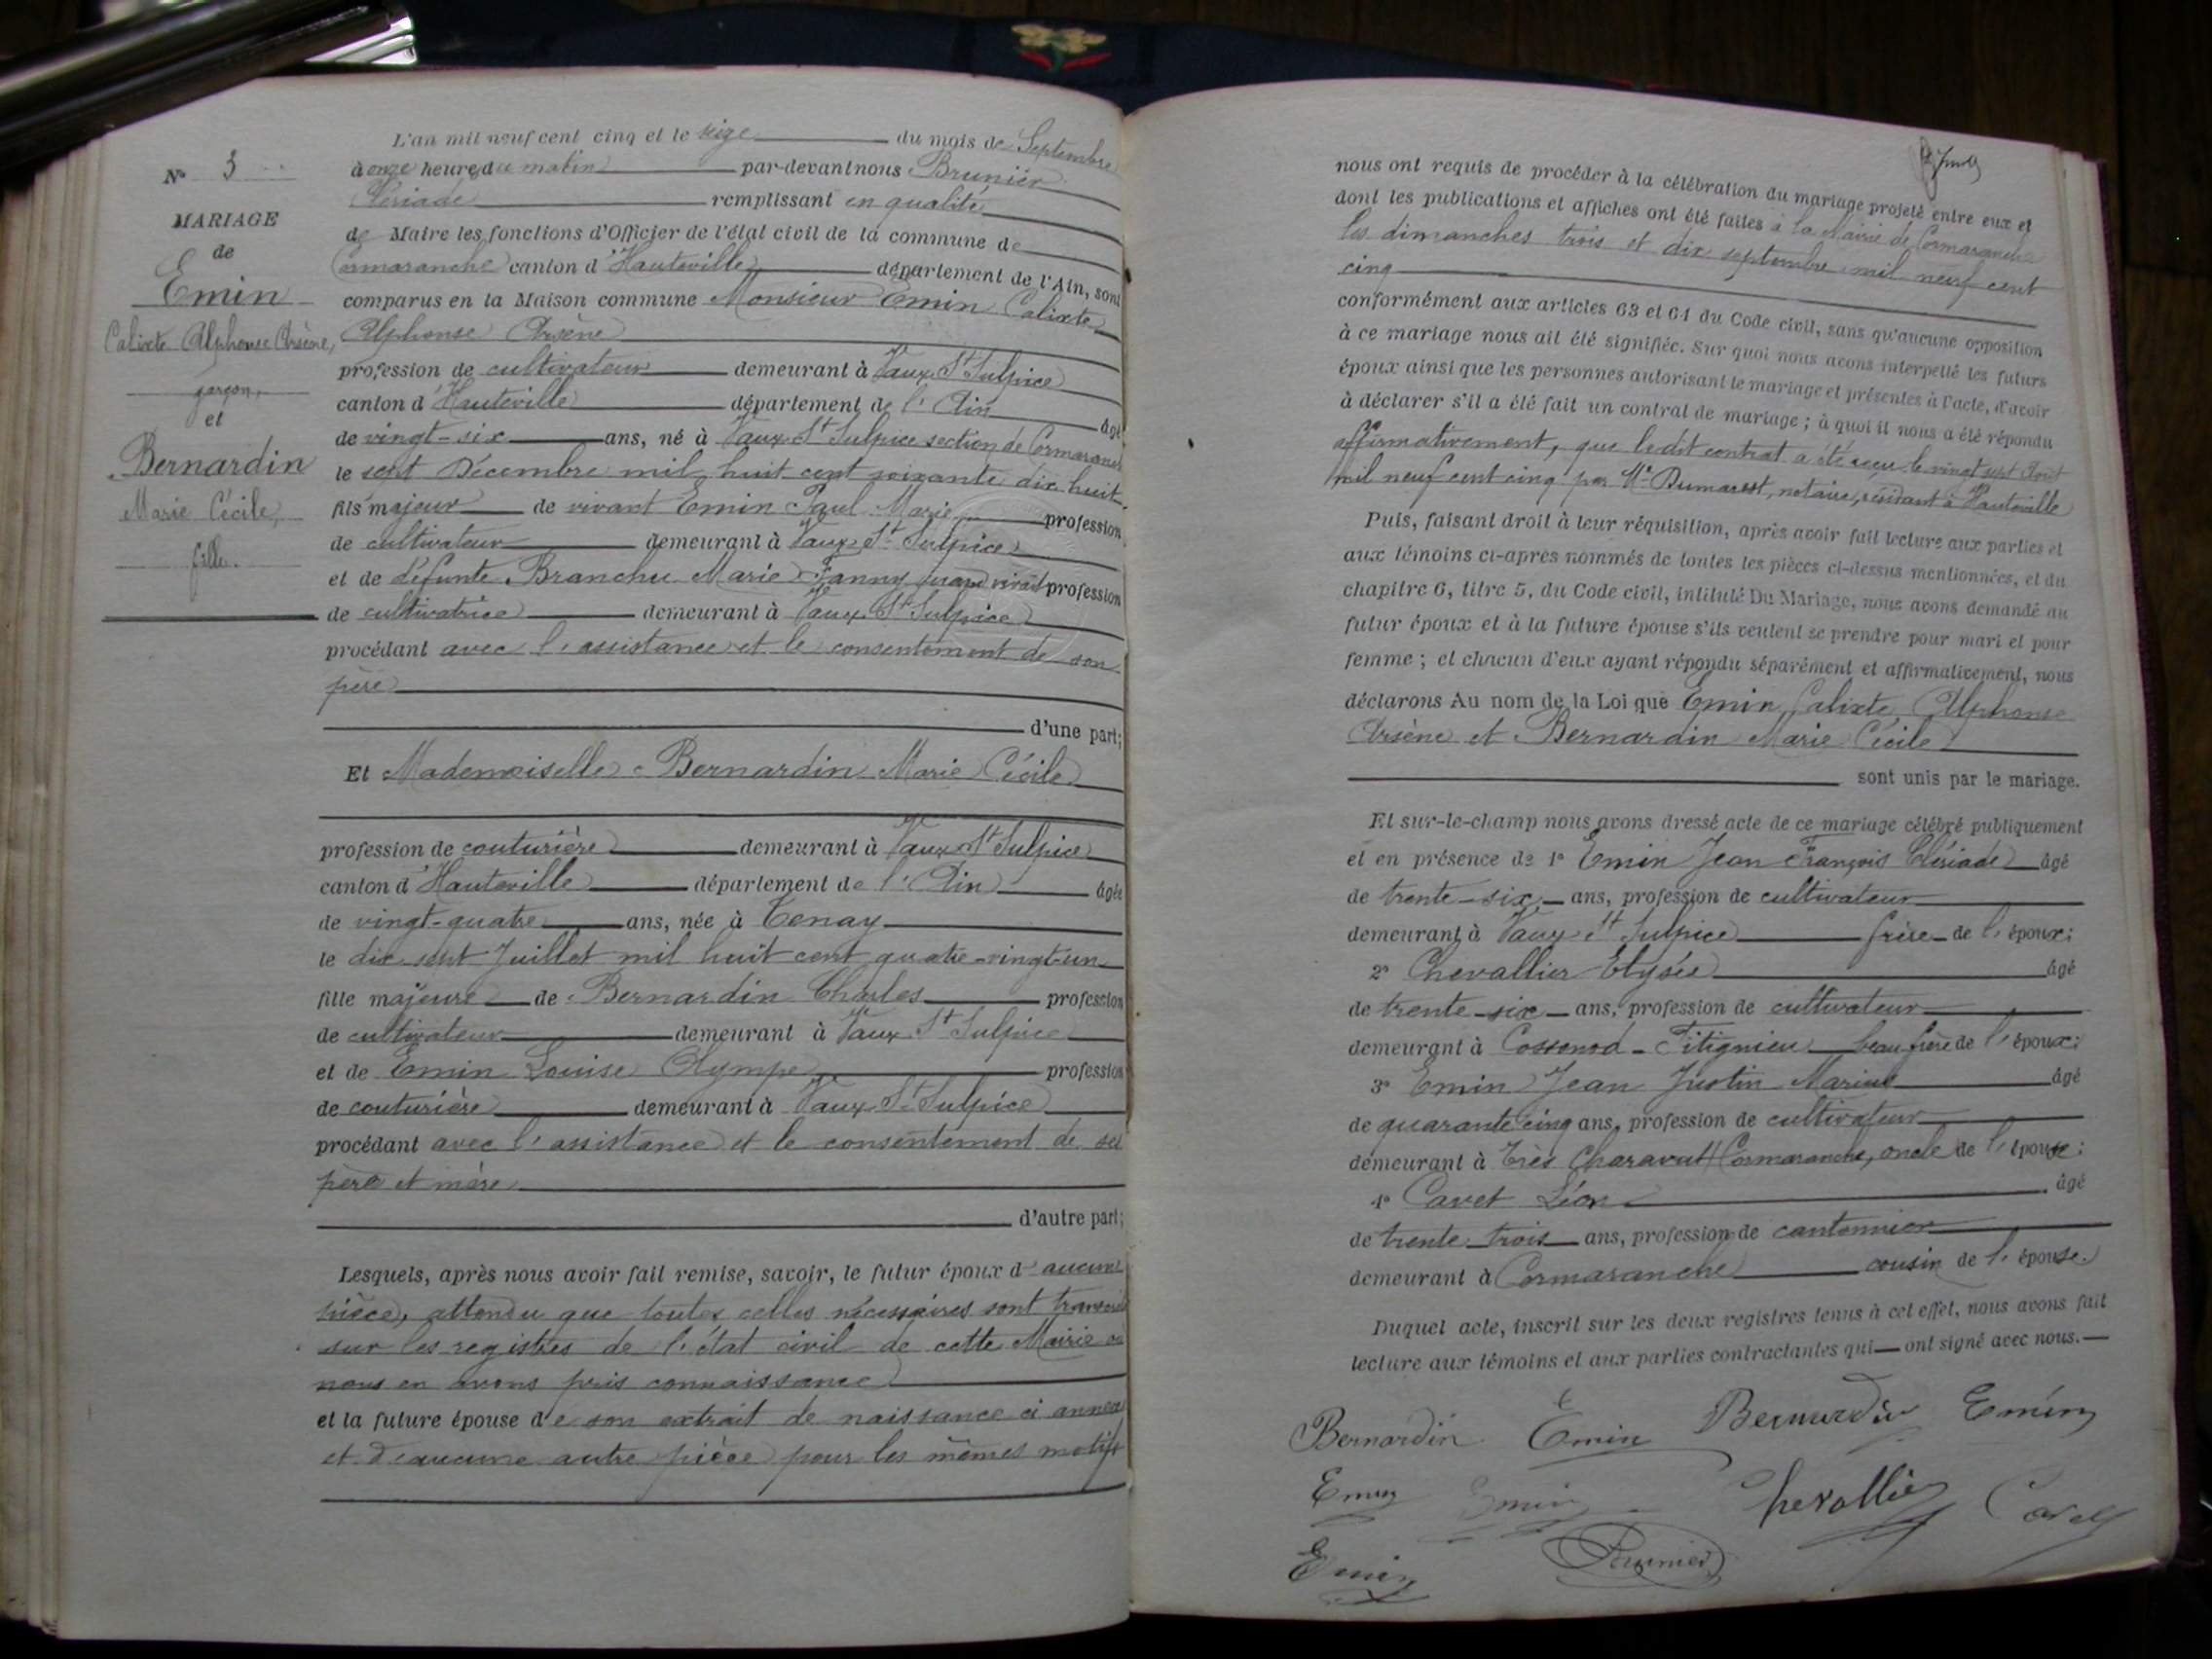 N° 3
MARIAGE
de
Emin
Calixte Alphonse Arsène,
garçon,
et
Bernardin
Marie Cécile,
fille.
L'an mil neuf cent cinq et le seize du mois de Septembre
à onze heures du matin par-devant nous Brunier
Clériade remplissant en qualité
de Maire les fonctions d'Officier de l'état civil de la commune de
Cormaranche canton d'Hauteville département de l'Ain, sont
comparus en la Maison commune Monsieur Emin Calixte
Alphonse Arsène
profession de cultivateur demeurant à Vaux St Sulpice
canton d'Hauteville département de l'Ain âgé
de vingt-six ans, né à Vaux St Sulpice section de Cormaranche
le sept Décembre mil huit cent soixante dix huit
fils majeur de vivant Emin Paul Marie profession
de cultivateur demeurant à Vaux St Sulpice
et de défunte Branchu Marie Fanny quand vivait profession
de cultivatrice demeurant à Vaux St Sulpice
procédant avec l'assistance et le consentement de son
père
d'une part;
Et Mademoiselle Bernardin Marie Cécile
profession de couturière demeurant à Vaux St Sulpice
canton d'Hauteville département de l'Ain âgée
de vingt-quatre ans, née à Tenay
le dix-sept Juillet mil huit cent quatre-vingt-un
fille majeure de Bernardin Charles profession
de cultivateur demeurant à Vaux St Sulpice
et de Emin Louise Olympe profession
de couturière demeurant à Vaux St Sulpice
procédant avec l'assistance et le consentement de ses
père et mère
d'autre part;
Lesquels, après nous avoir fait remise, savoir, le futur époux d'aucune
pièce, attendu que toutes celles nécessaires sont transcrites
sur les registres de l'état civil de cette Mairie où
nous en avons pris connaissance
et la future épouse de son extrait de naissance ci annexé
et d'aucune autre pièce pour les mêmes motifs
nous ont requis de procéder à la célébration du mariage projeté entre eux et
dont les publications et affiches ont été faites à la Mairie de Cormaranche
les dimanches trois et dix septembre mil neuf cent
cinq
conformément aux articles 63 et 64 du Code civil, sans qu'aucune opposition
à ce mariage nous ait été signifiée. Sur quoi nous avons interpellé les futurs
époux ainsi que les personnes autorisant le mariage et présentes à l'acte, d'avoir
à déclarer s'il a été fait un contrat de mariage; à quoi il nous a été répondu
affirmativement, que ledit contrat a été reçu le vingt sept Août
mil neuf cent cinq par Me Dumarest, notaire, résidant à Hauteville
Puis, faisant droit à leur réquisition, après avoir fait lecture aux parties et
aux témoins ci-après nommés de toutes les pièces ci-dessus mentionnées, et du
chapitre 6, titre 5, du Code civil, intitulé Du Mariage, nous avons demandé au
futur époux et à la future épouse s'ils veulent se prendre pour mari et pour
femme; et chacun d'eux ayant répondu séparément et affirmativement, nous
déclarons Au nom de la Loi que Emin Calixte Alphonse
Arsène et Bernardin Marie Cécile
sont unis par le mariage.
Et sur-le-champ nous avons dressé acte de ce mariage célébré publiquement
et en présence de 1° Emin Jean François Clériade âgé
de trente-six ans, profession de cultivateur
demeurant à Vaux St Sulpice frère de l'époux;
2° Chevallier Elysée âgé
de trente-six ans, profession de cultivateur
demeurant à Cossonod-Fitignieu beau frère de l'époux;
3° Emin Jean Justin Marius âgé
de quarante cinq ans, profession de cultivateur
demeurant à Très Charavut Cormaranche, oncle de l'épouse;
4° Cavet Léon âgé
de trente-trois ans, profession de cantonnier
demeurant à Cormaranche cousin de l'épouse.
Duquel acte, inscrit sur les deux registres tenus à cet effet, nous avons fait
lecture aux témoins et aux parties contractantes qui ont signé avec nous.
Bernardin Emin Bernardin Emin
Emin Emin Chevallier Cavet
Emin Brunier